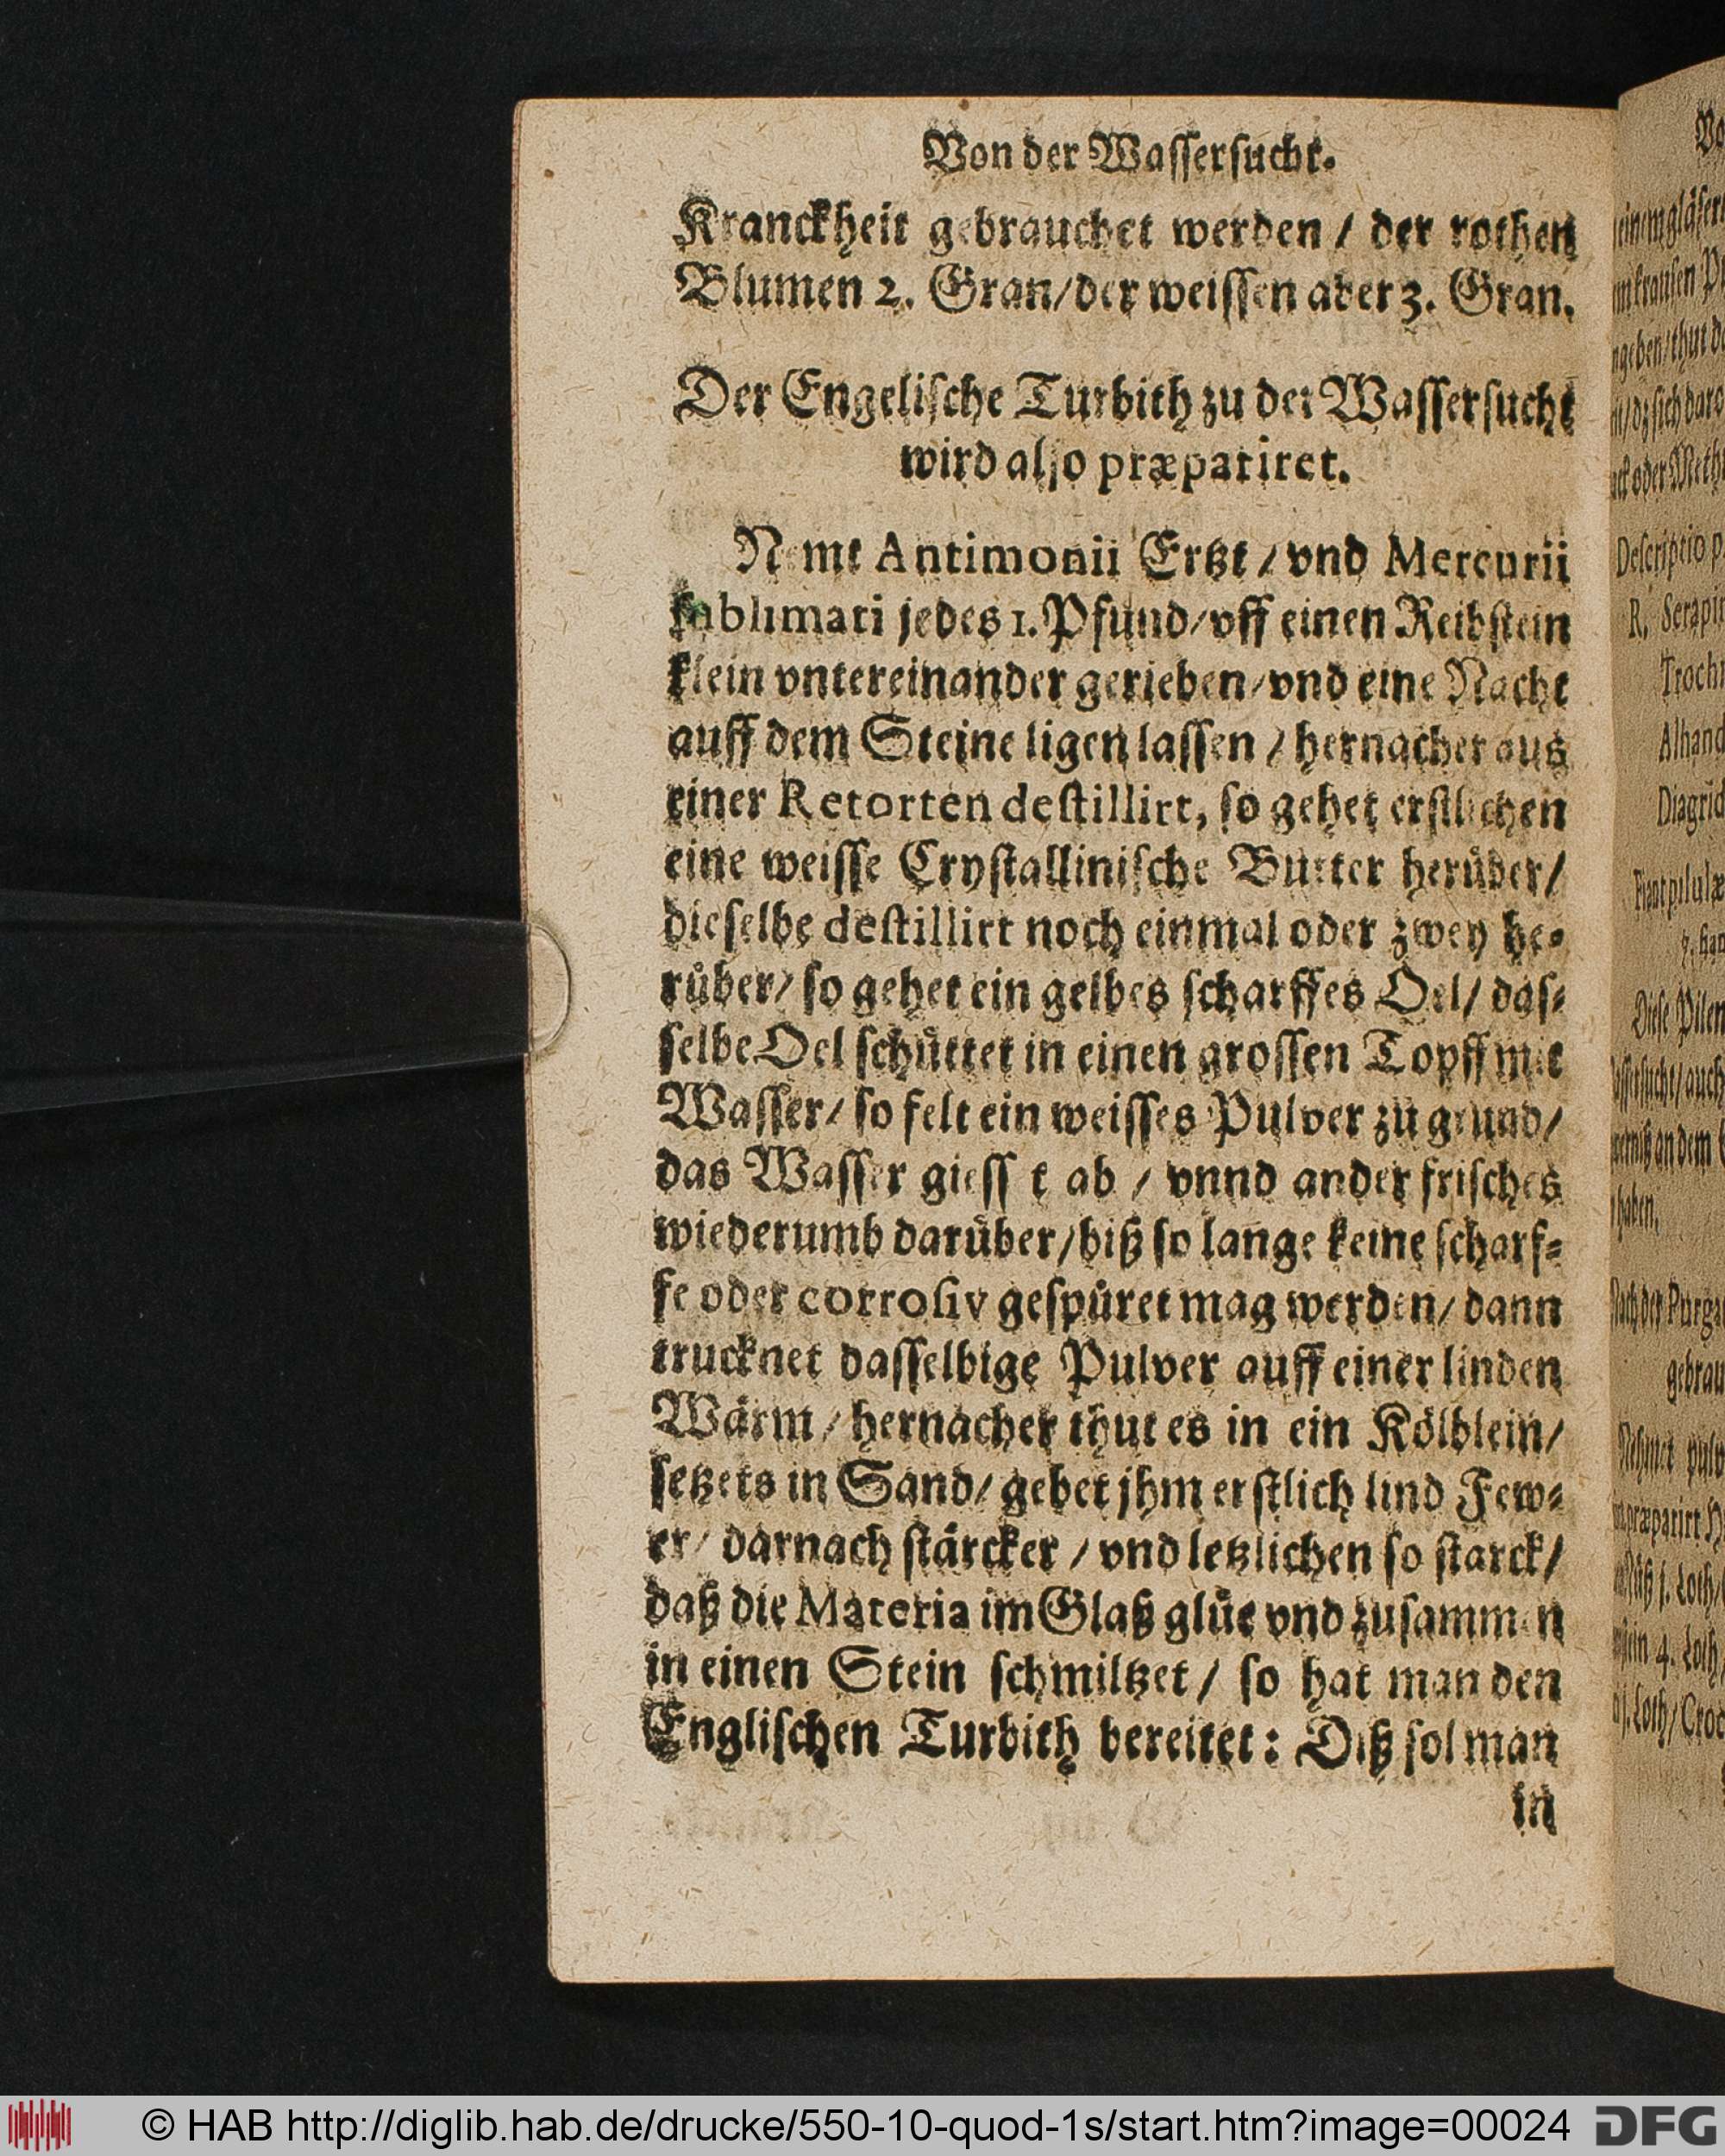 Von der Wasserſucht.
Kranckheit gebrauchet werden / der rothen
Blumen 2. Gran/der weiſſen aber 3. Gran.
Der Engeliſche Turbith zu der Waſſerſucht
wird alſo præpariret.
Nemt Antimonii Ertzt / vnd Mercurii
ſublimati jedes 1. Pfund/vff einen Reibſtein
klein vntereinander gerieben/vnd eine Nacht
auff dem Steine ligen laſſen / hernacher aus
einer Retorten deſtillirt, ſo gehet erſtlichen
eine weiſſe Cryſtalliniſche Butter herüber/
dieſelbe deſtillirt noch einmal oder zwey he-
rüber/ ſo gehet ein gelbes ſcharffes Oel/ daſ-
ſelbe Oel ſchüttet in einen groſſen Topff mit
Waſſer/ ſo felt ein weiſſes Pulver zu grund/
das Waſſer gieſſet ab / vnnd ander friſches
wiederumb darüber/biß ſo lange keine ſcharf-
fe oder corroſiv geſpüret mag werden/ dann
trucknet daſſelbige Pulver auff einer linden
Wärm / hernacher thut es in ein Kölblein/
ſetzets in Sand/ gebet jhm erſtlich lind Few-
er/ darnach ſtärcker / vnd letzlichen ſo ſtarck/
daß die Materia im Glaß glüe vnd zuſammen
in einen Stein ſchmiltzet / ſo hat man den
Engliſchen Turbith bereitet: Diß ſol man
in
einem gläſer
krauſen
geben/thut
ſich
oder Meth
Deſcriptio
R. Serapi
Troch
Alhand
Diagrid
Fiant pilulæ
Dieſe Pilen
auch
an dem
haben.
Nach der Purga
gebrau
Nehmet pulv
præparirt
Loth/
4. Loth
Loth/ Croc
© HAB http://diglib.hab.de/drucke/550-10-quod-1s/start.htm?image=00024
DFG